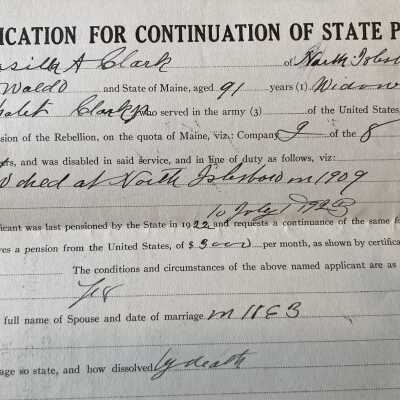 ICATION FOR CONTINUATION OF STATE P
A Clark of North Islesbo
Waldo and State of Maine, aged 91 years (1) Widow
Clark who served in the army (3) of the United States,
sion of the Rebellion, on the quota of Maine, viz: Company of the 8
ers, and was disabled in said service, and in line of duty as follows, viz:
died at North Islesboro in 1909
to July 1
icant was last pensioned by the State in 1922 and requests a continuance of the same fo
ves a pension from the United States, of $ per month, as shown by certifica
The conditions and circumstances of the above named applicant are as
Yes
full name of Spouse and date of marriage. in
age so state, and how dissolved by death